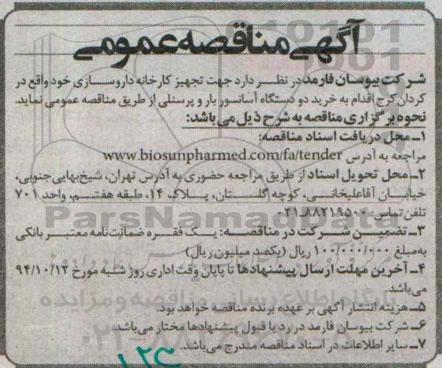 آگهی مناقصه عمومی
شرکت بیوسان فارمد در نظر دارد جهت تجهیز کارخانه داروسازی خود واقع در
کردان کرج اقدام به خرید دو دستگاه آسانسور بار و پرسنلی از طریق مناقصه عمومی نماید.
نحوه برگزاری مناقصه به شرح ذیل می باشد:
۱- محل دریافت اسناد مناقصه:
مراجعه به آدرس www.biosunpharmed.com/fa/tender
۲- محل تحویل اسناد از طریق مراجعه حضوری به آدرس تهران، شیخ بهایی جنوبی،
خیابان آقاعلیخانی، کوچه گلستان، پلاک ۱۴، طبقه هفتم، واحد ۷۰۱
تلفن تماس: ۸۸۲۱۹۵۰۰-۰۲۱
۳- تضمین شرکت در مناقصه: یک فقره ضمانت نامه معتبر بانکی
به مبلغ ۱۰۰/۰۰۰/۰۰۰ ریال (یکصد میلیون ریال)
۴- آخرین مهلت ارسال پیشنهادها تا پایان وقت اداری روز شنبه مورخ ۹۴/۱۰/۱۲
می باشد.
۵- هزینه انتشار آگهی بر عهده برنده مناقصه خواهد بود.
۶- شرکت بیوسان فارمد در رد یا قبول پیشنهادها مختار می باشد.
۷- سایر اطلاعات در اسناد مناقصه مندرج می باشد.
ParsNamadData
پایگاه اطلاع رسانی مناقصه و مزایده